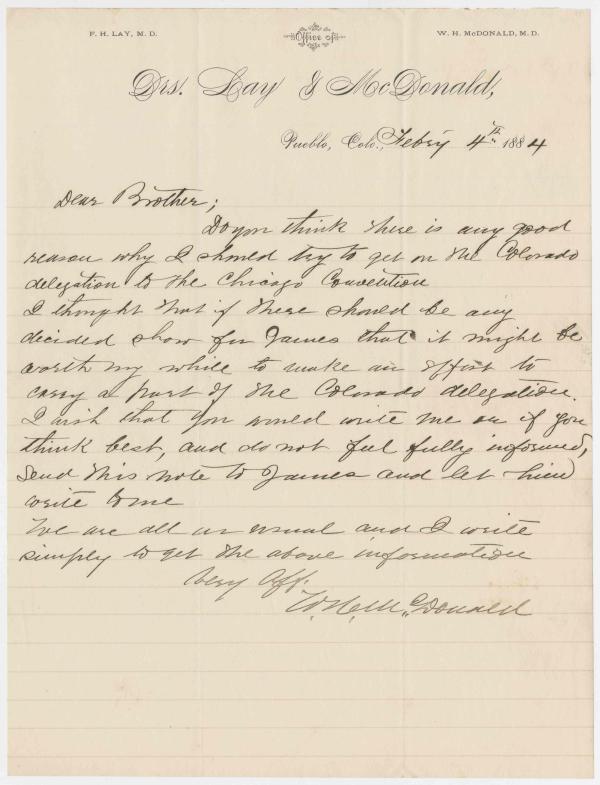 F. H. LAY, M. D.
Office of
W. H. McDONALD, M. D.
Drs. Lay & McDonald,
Pueblo, Colo., Feb'ry 4th 1884
Dear Brother;
Do you think there is any good
reason why I should try to get on the Colorado
delegation to the Chicago Convention
I thought that if there should be any
decided show for James that it might be
worth my while to make an effort to
carry a part of the Colorado delegation.
I wish that you would write me or if you
think best, and do not feel fully informed,
send this note to James and let him
write to me
We are all as usual and I write
simply to get the above information
Very Aff.
W. H. McDonald